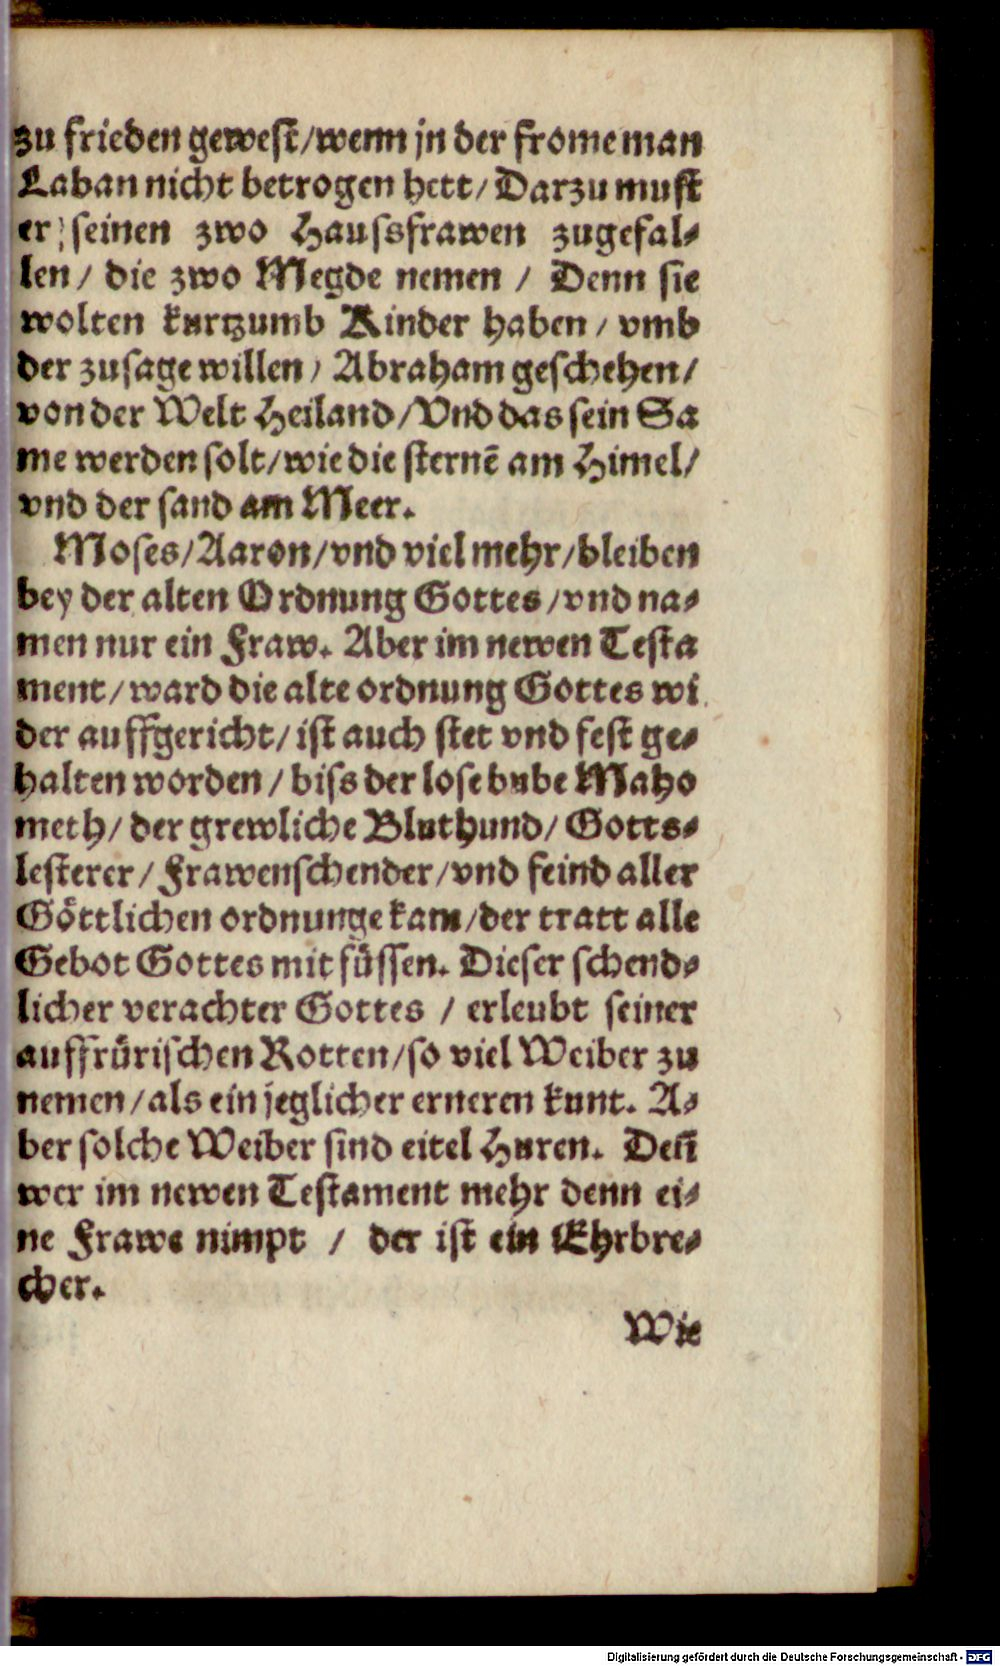 zu frieden gewest/wenn jn der frome man
Laban nicht betrogen hett/ Darzu must
er/ seinen zwo Haussfrawen zugefal-
len/ die zwo Megde nemen / Denn sie
wolten kurtzumb Kinder haben/ vmb
der zusage willen/ Abraham geschehen/
von der Welt Heiland/Vnd das sein Sa
me werden solt/wie die sternē am Himel/
vnd der sand am Meer.
Moses/Aaron/vnd viel mehr/bleiben
bey der alten Ordnung Gottes/vnd na-
men nur ein Fraw. Aber im newen Testa
ment/ward die alte ordnung Gottes wi
der auffgericht/ist auch stet vnd fest ge-
halten worden/ biss der lose bube Maho
meth/ der grewliche Bluthund/ Gotts-
lesterer/ Frawenschender/vnd feind aller
Göttlichen ordnunge kam/der tratt alle
Gebot Gottes mit füssen. Dieser schend-
licher verachter Gottes / erleubt seiner
auffrürischen Rotten/so viel Weiber zu
nemen/als ein jeglicher erneren kunt. A-
ber solche Weiber sind eitel Huren. Deñ
wer im newen Testament mehr denn ei-
ne Frawe nimpt / der ist ein Ehrbre-
cher.
Wie
Digitalisierung gefördert durch die Deutsche Forschungsgemeinschaft - DFG